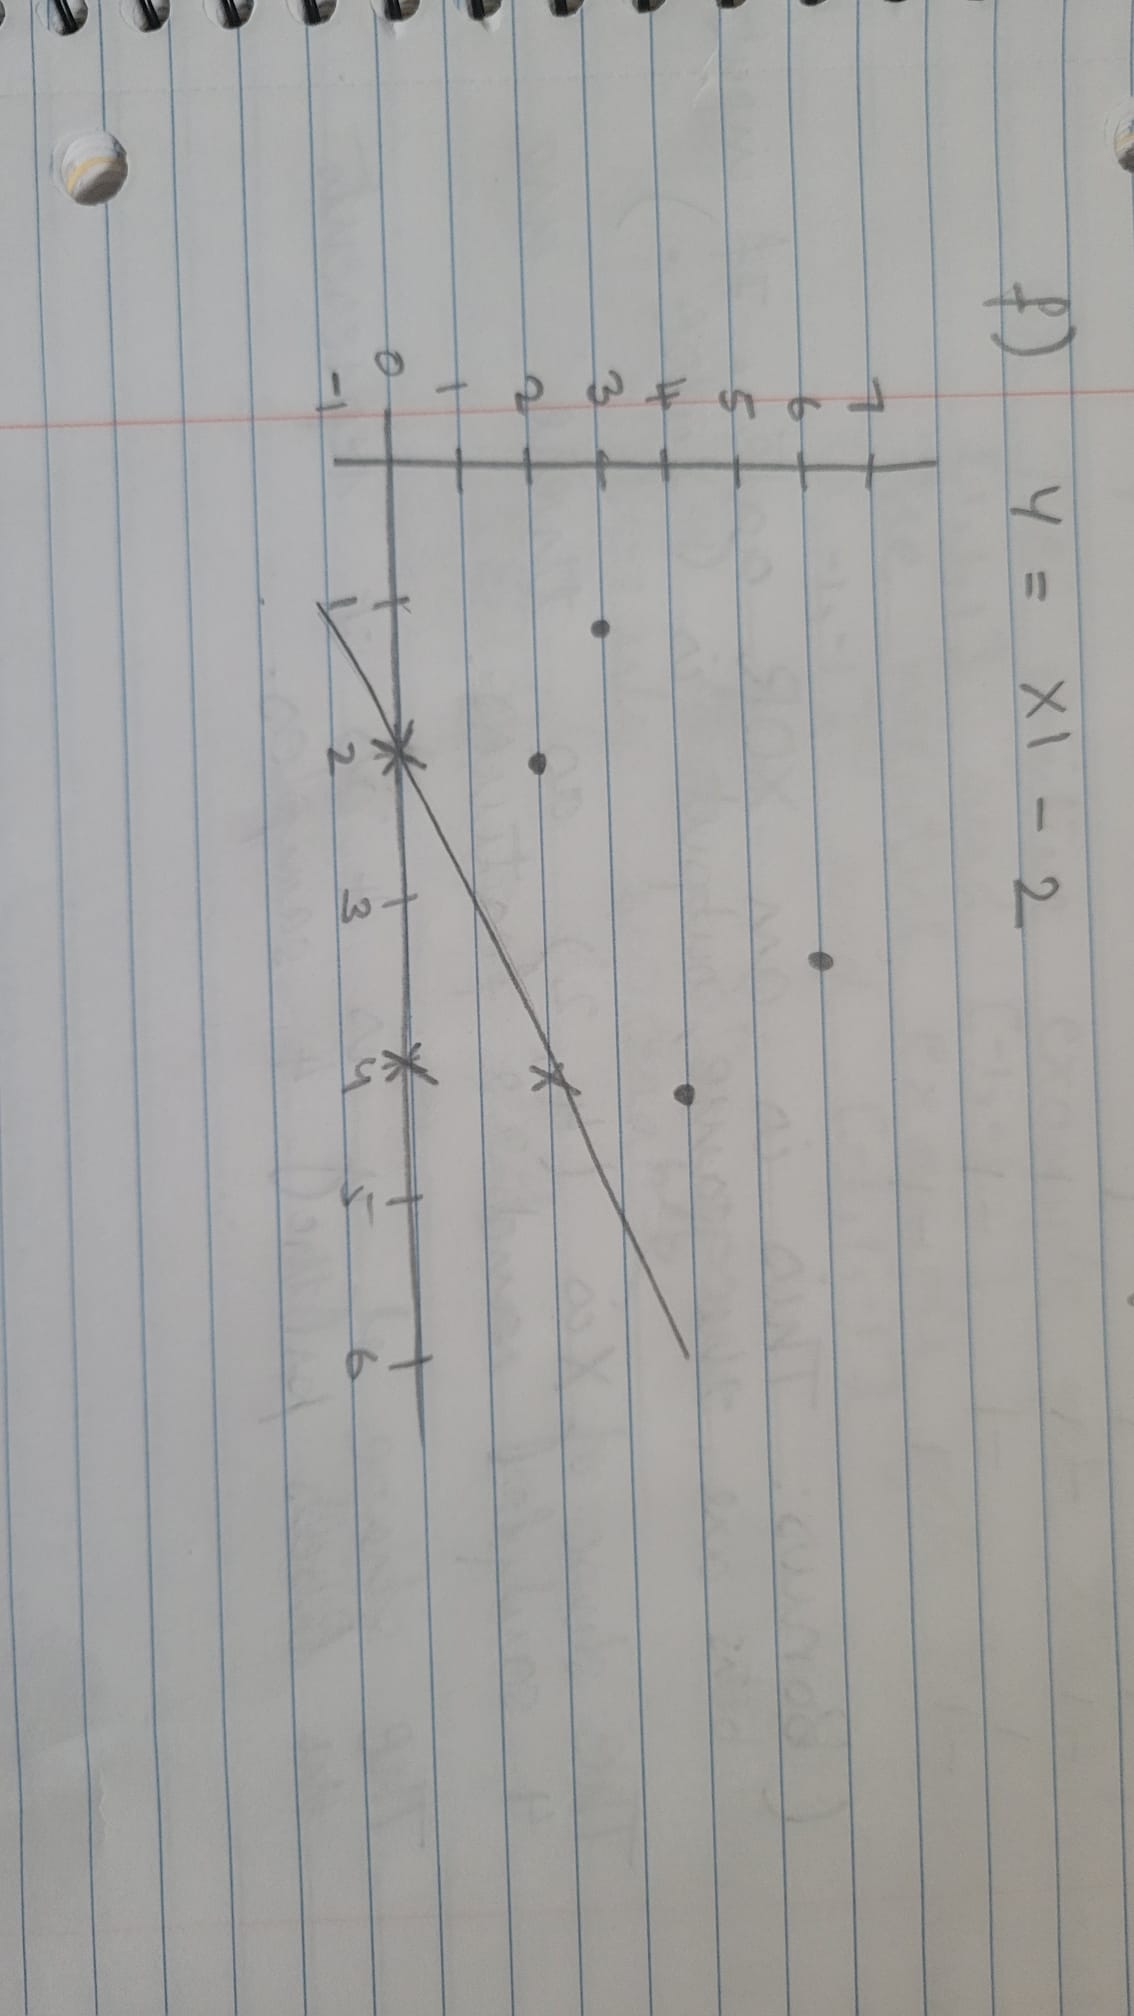 f) y = x1 - 2
7
6
5
4
3
2
1
0
-1
1 2 3 4 5 6